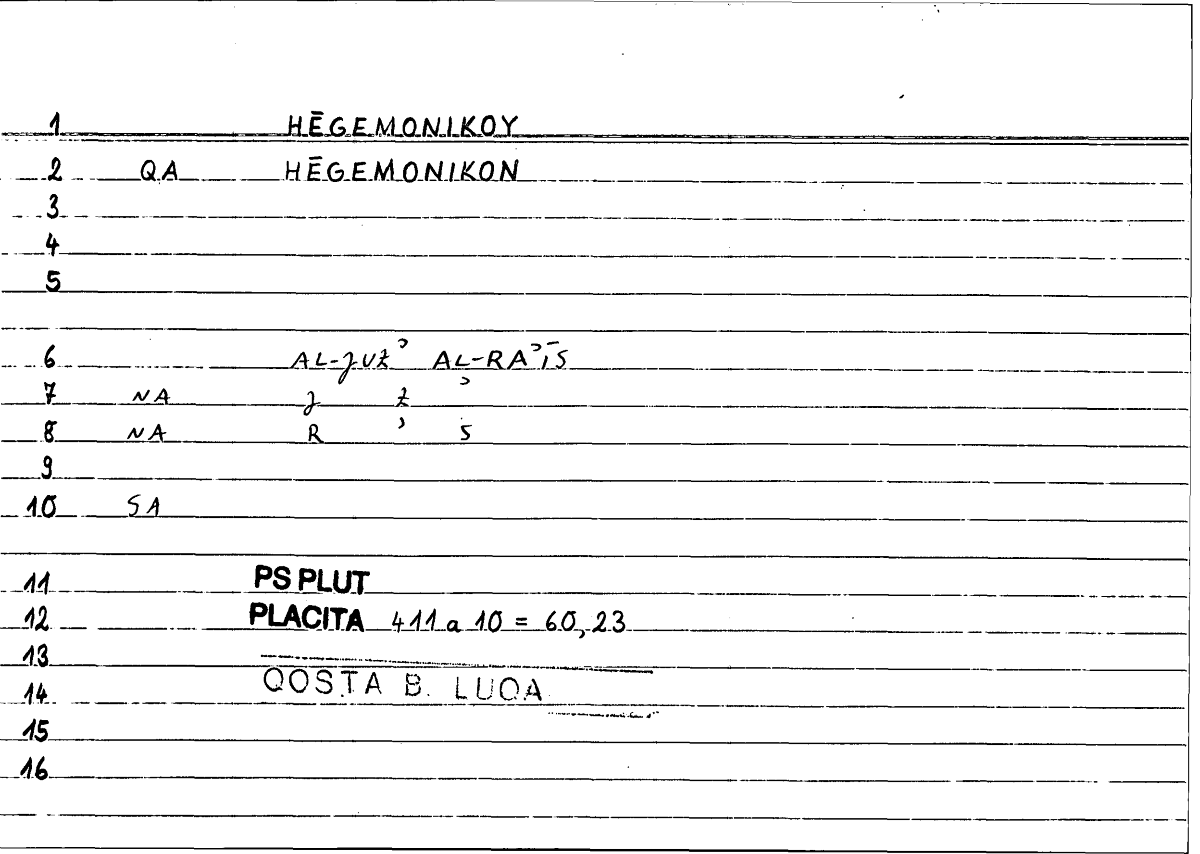 1 HĒGEMONIKOY
2 QA HĒGEMONIKON
3
4
5
6 AL-ȷUẔʾ AL-RAʾĪS
7 NA ȷ Ẕ ʾ
8 NA R ʾ S
9
10 SA
11 PS PLUT
12 PLACITA 411 a 10 = 60,23
13
14 QOSTA B. LUQA
15
16